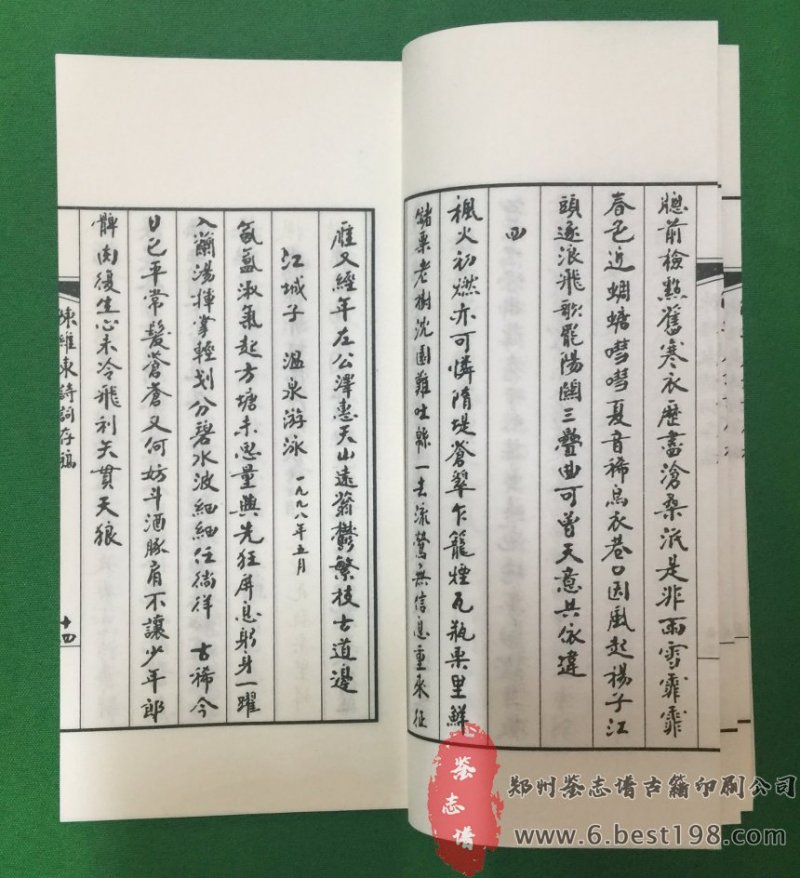 牕前檢點舊寒衣歷盡滄桑泯是非雨雪霏霏
春色近蜩螗嘒嘒夏音稀烏衣巷口因風起楊子江
頭逐浪飛歌罷陽關三疊曲可曾天意共依違
四
楓火初燃亦可憐隋堤蒼翠乍籠煙瓦瓶栗里鮮
儲粟老樹沈園難吐緜一去流鶯無信息重來征
雁又經年左公澤惠天山遠蓊鬱繁枝古道邊
江城子 溫泉游泳 一九九八年五月
氤氳淑氣起方塘未思量興先狂屏息躬身一躍
入蘭湯揮掌輕划分碧水波細細任徜徉 古稀今
日已平常髮蒼蒼又何妨斗酒豚肩不讓少年郎
髀肉復生心未冷飛利矢貫天狼
陳維東詩詞存稿
十四
鉴志谱
郑州鉴志谱古籍印刷公司
www.6.best198.com